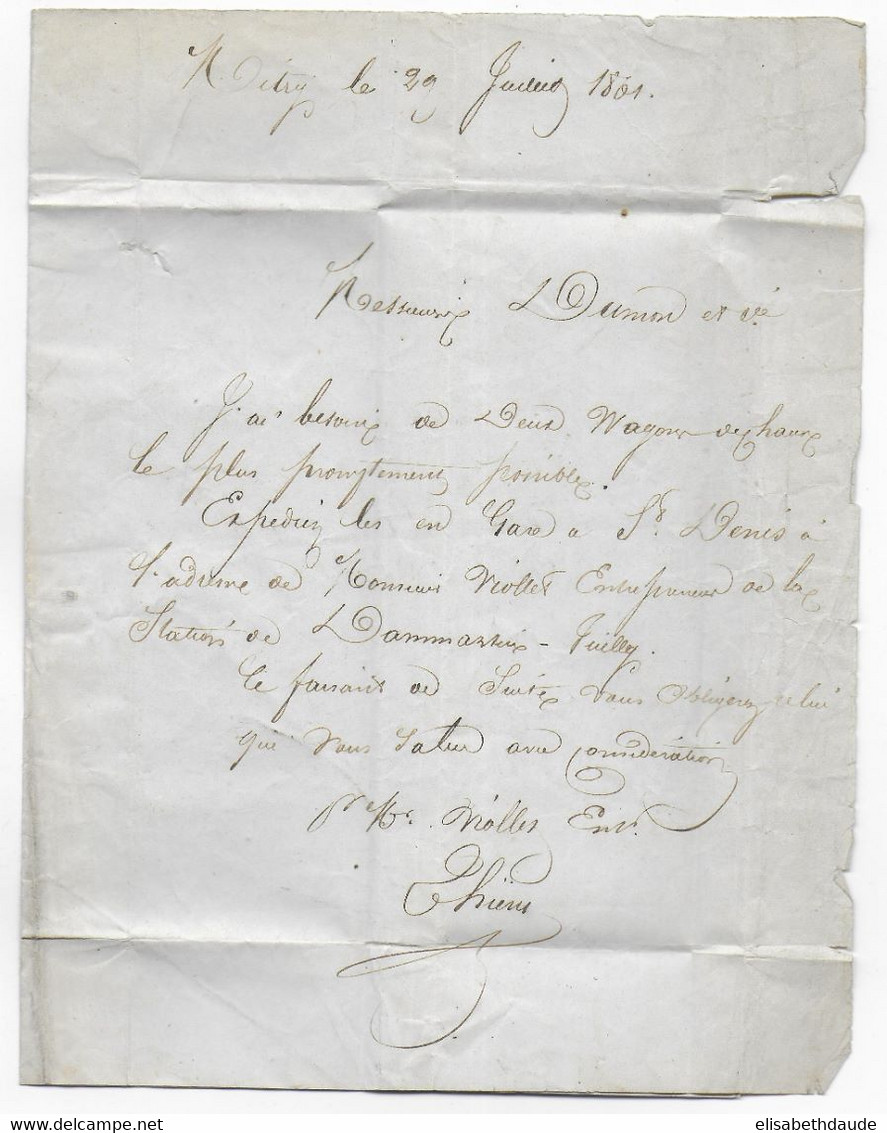 Mitry le 29 Juillet 1861.
Messieurs Dumon et Cie
J'ai besoin de Deux Wagons de chaux
le plus promptement possible.
Expediez les en Gare a St. Denis à
l'adresse de Monsieur Viollet Entrepreneur de la
Station de Dammartin - Juilly.
Ce faisant de Suite vous obligerez celui
qui Vous Salue avec Considération
pr Mr. Viollet Entr.
Thiens
elisabethdaude